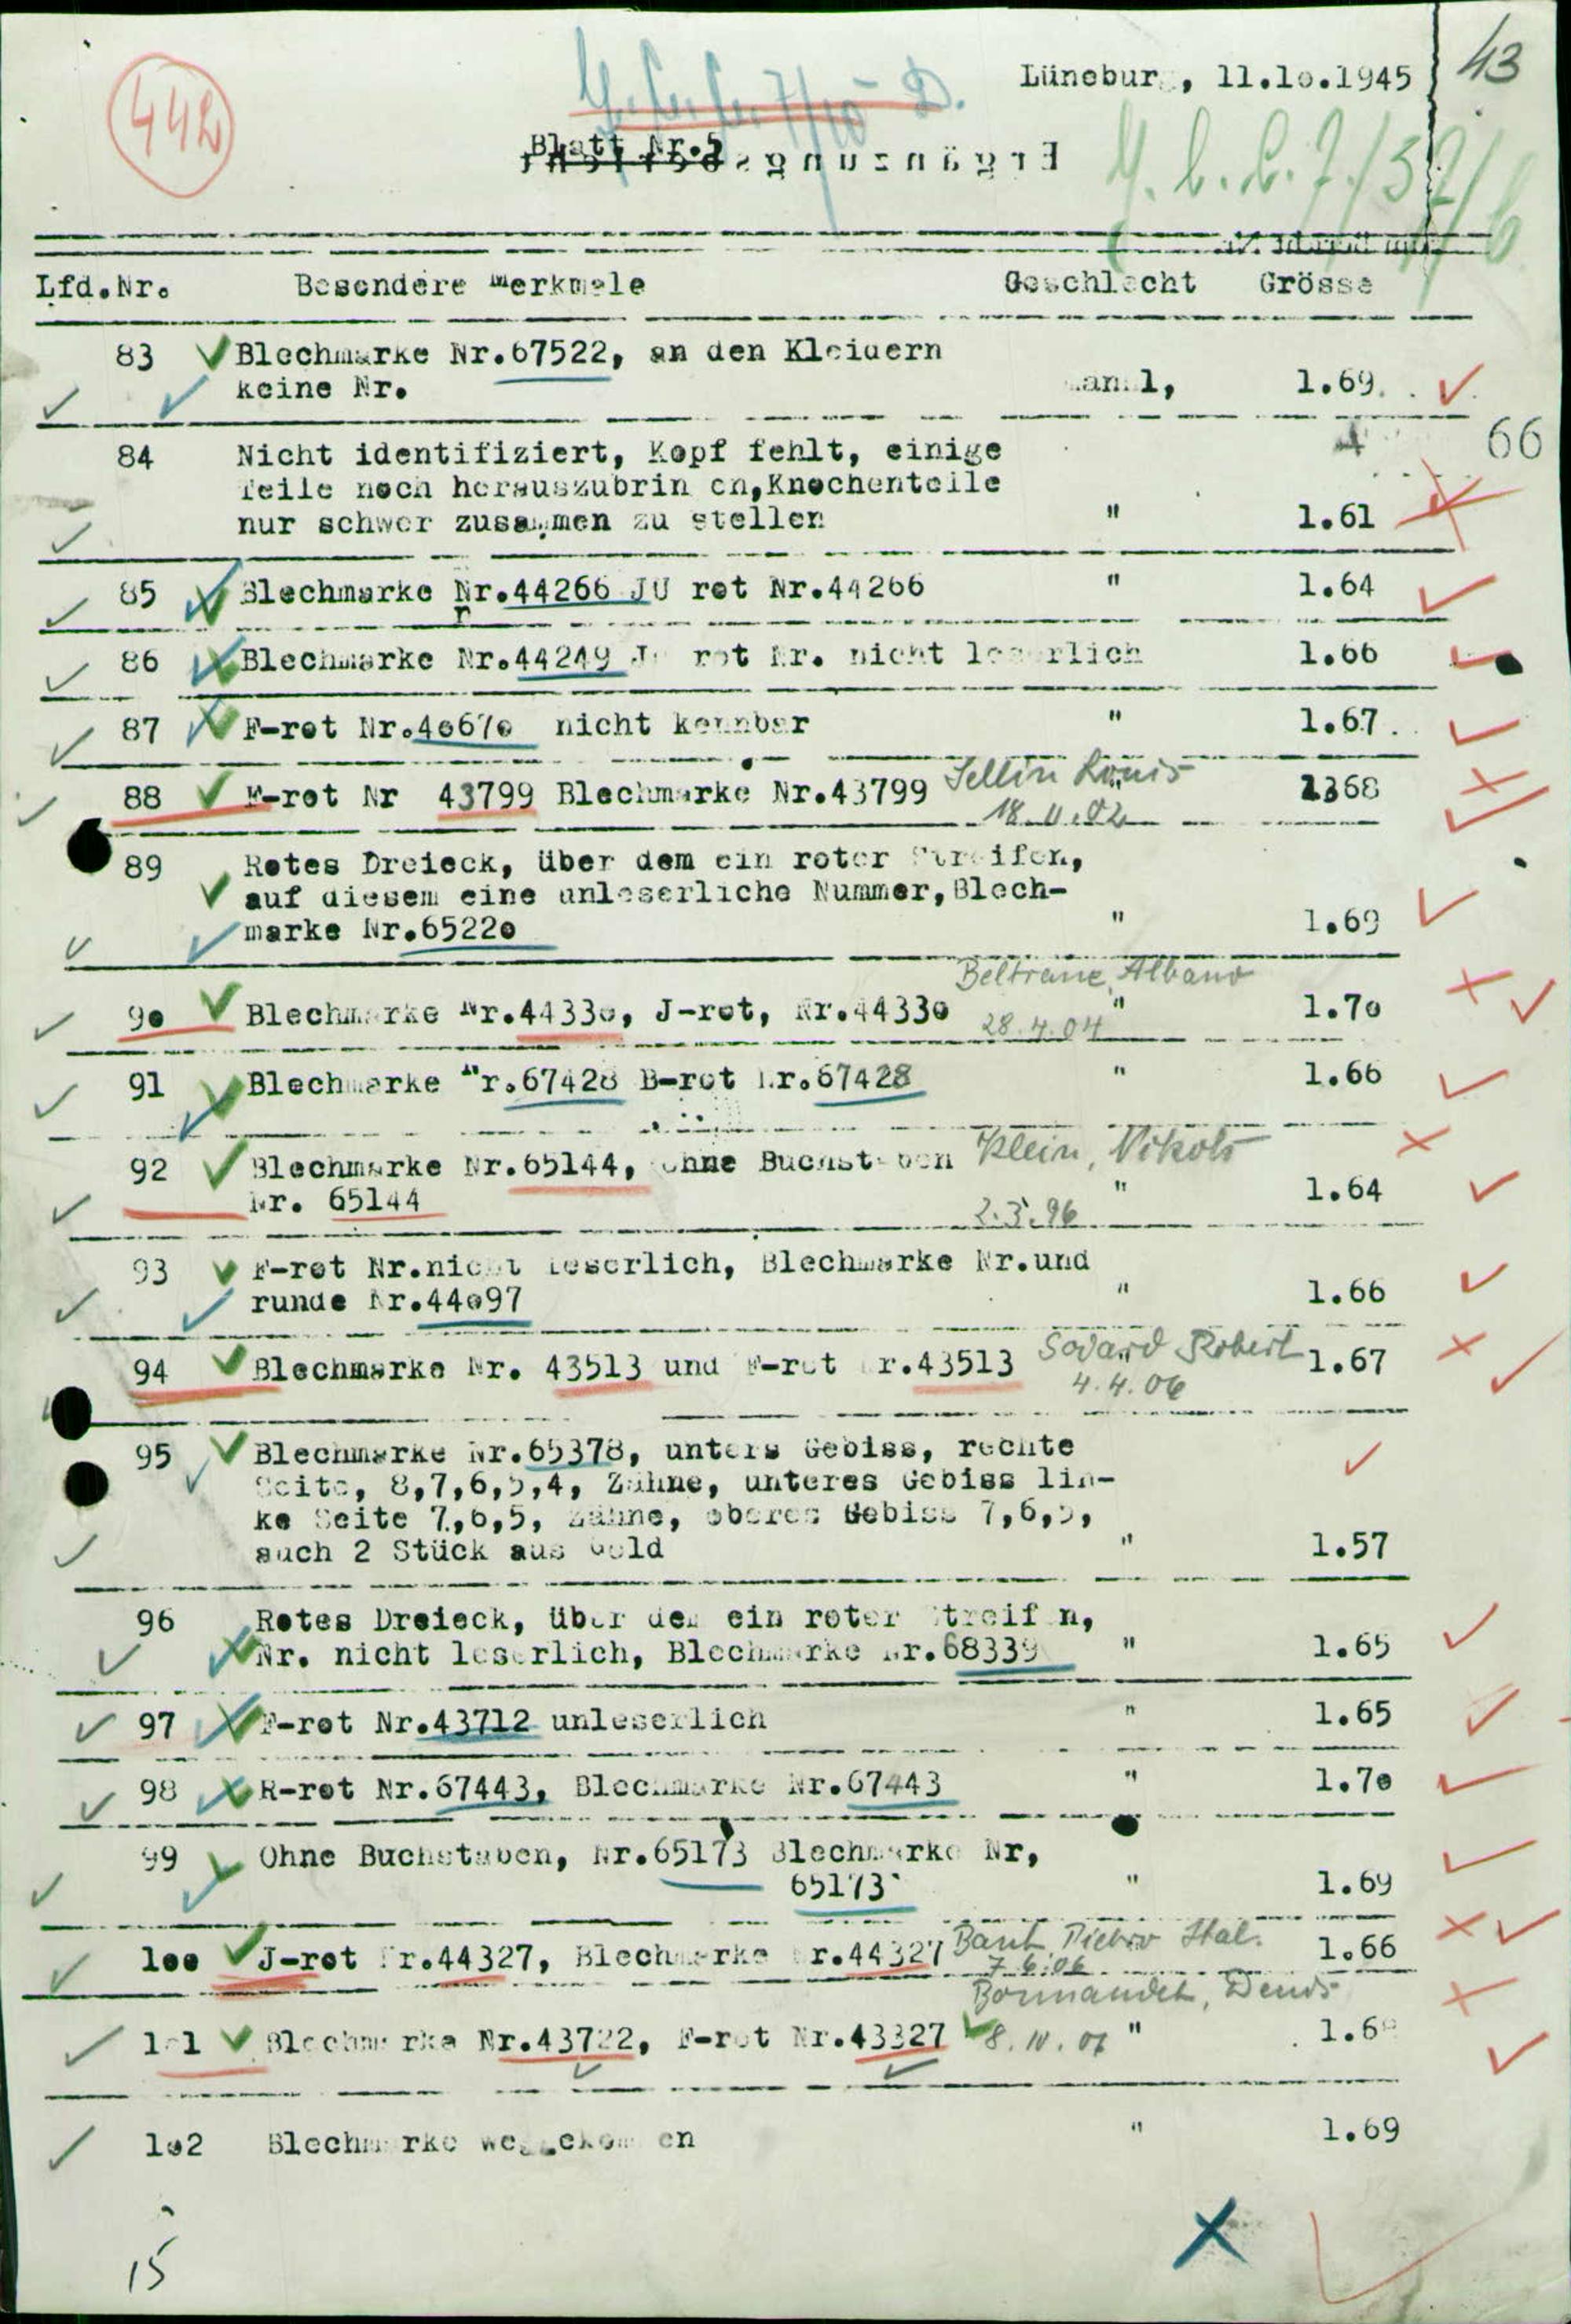 43
442
Lüneburg, 11.1o.1945
Blatt Nr.5
Lfd.Nr. Besondere Merkmale Geschlecht Grösse
83 Blechmarke Nr.67522, an den Kleidern
keine Nr. 1.69
66
84 Nicht identifiziert, Kopf fehlt, einige
Teile noch herauszubringen,Knochenteile
nur schwer zusammen zu stellen " 1.61
85 Blechmarke Nr.44266 JU rot Nr.44266 " 1.64
86 Blechmarke Nr.44249 rot Nr. nicht leserlich 1.66
87 F-rot Nr.4o67o nicht kennbar " 1.67
88 F-rot Nr 43799 Blechmarke Nr.43799 Sellin Louis 1368
18.11.02
89 Rotes Dreieck, über dem ein roter Streifen,
auf diesem eine unleserliche Nummer,Blech-
marke Nr.6522o " 1.69
Beltrane, Albano
9o Blechmarke Nr.4433o, J-rot, Nr.4433o " 1.7o
28.4.04
91 Blechmarke Nr.67428 B-rot Nr.67428 " 1.66
92 Blechmarke Nr.65144, ohne Buchstaben Klein, Nikols
Nr. 65144 " 1.64
2.3.96
93 F-rot Nr.nicht leserlich, Blechmarke Nr.und
runde Nr.44o97 " 1.66
94 Blechmarke Nr. 43513 und F-rot Nr.43513 Robert 1.67
4.4.06
95 Blechmarke Nr.65378, unters Gebiss, rechte
Seite, 8,7,6,5,4, Zähne, unteres Gebiss lin-
ke Seite 7,6,5, Zähne, oberes Gebiss 7,6,5,
auch 2 Stück aus Gold " 1.57
96 Rotes Dreieck, über dem ein roter Streifen,
Nr. nicht leserlich, Blechmarke Nr.68339 " 1.65
97 F-rot Nr.43712 unleserlich " 1.65
98 R-rot Nr.67443, Blechmarke Nr.67443 " 1.7o
99 Ohne Buchstaben, Nr.65173 Blechmarke Nr,
65173 " 1.69
1oo J-rot Nr.44327, Blechmarke Nr.44327 Pietro Ital. 1.66
7.6.06
Denis
1o1 Blechmarke Nr.43722, F-rot Nr.43327 8.IV.07 " 1.6
1o2 Blechmarke weggekommen " 1.69
15